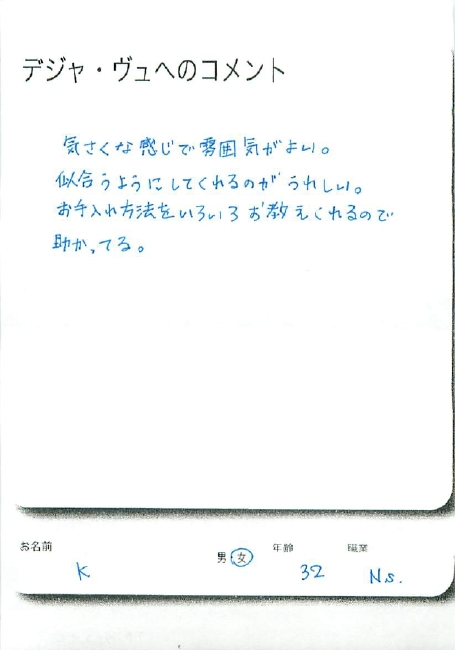 デジャ・ヴュへのコメント
気さくな感じで雰囲気がよい。
似合うようにしてくれるのがうれしい。
お手入れ方法をいろいろお教えくれるので
助かってる。
お名前 男 女 年齢 職業
K 32 Ns.